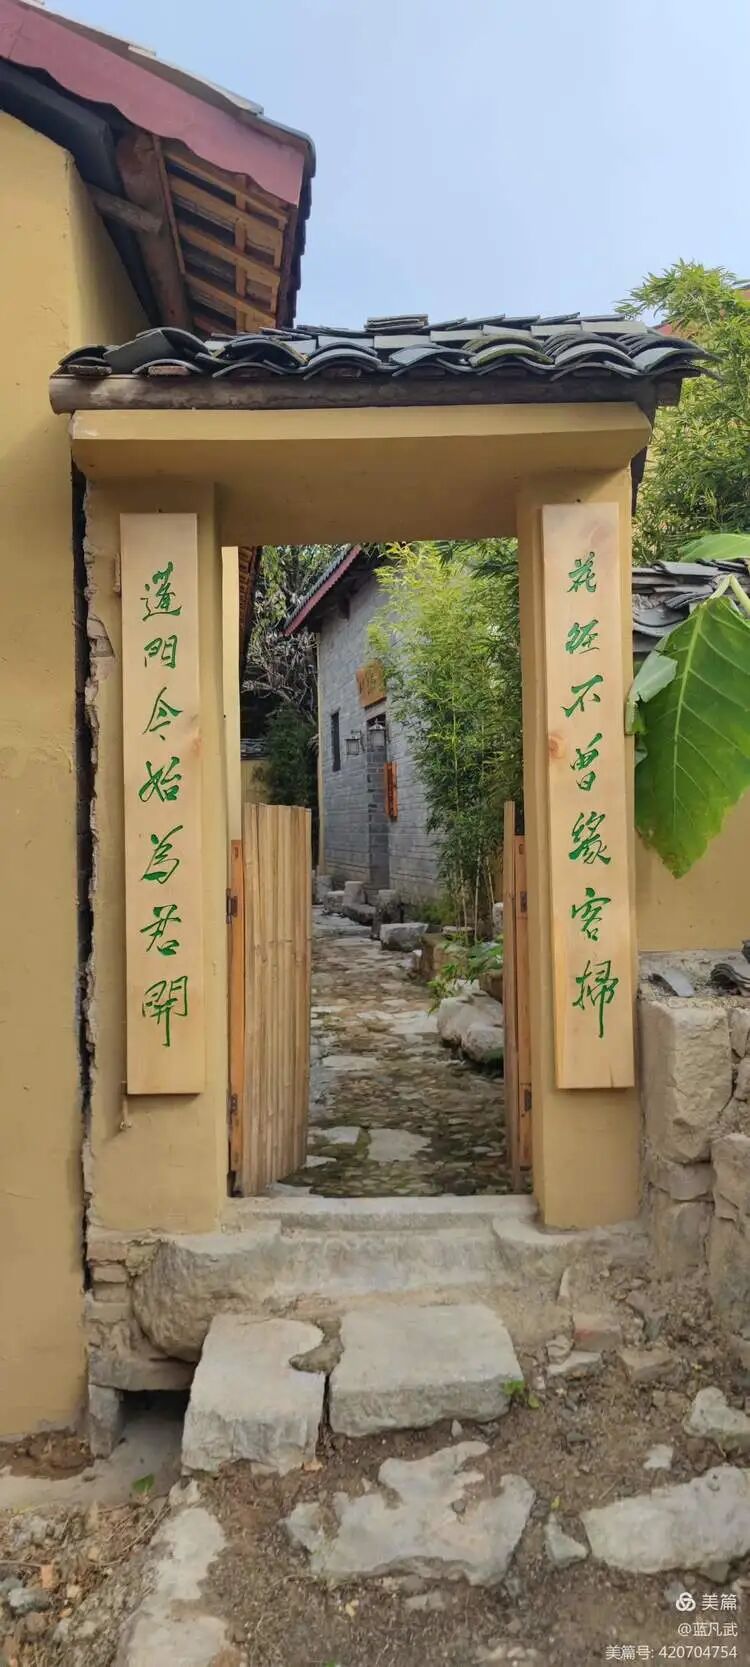 花径不曾缘客掃
蓬門今始為君開
美篇
@蓝凡武
美篇号: 420704754